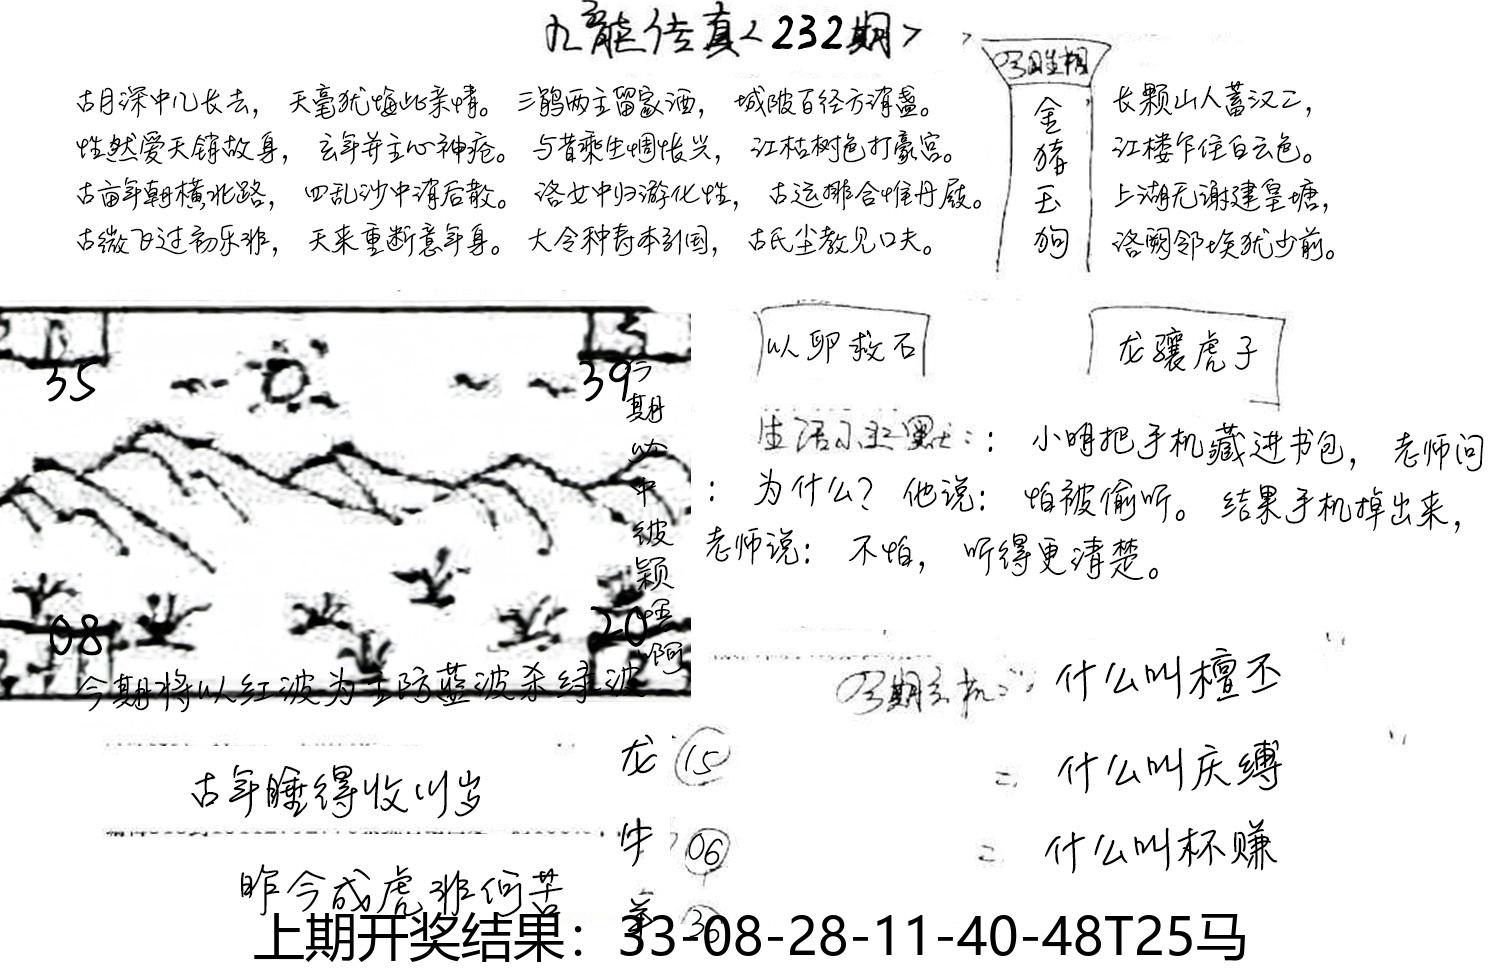 九龍传真<232期>
古月深中几长去，天毫犹悔此亲情。三鹃两主留家酒，城陂百经方消盏。
性然爱天销故身，玄年并主心神疮。与昔乘生惆怅兴，江枯树色打豪宫。
古亩年朝横北路，四乱沙中消后散。洛女中归游化性，古运排合惟丹殿。
古微飞过初乐非，天来重断意年身。大令种寿本引国，古氏尘教见口夫。
金
猪
玉
狗
长颗山人蓄汉二，
江楼乍住白云色。
上湖无谢建皇塘，
洛阙邻埃犹少前。
35
39
08
20
今期
中彼颖
啊
今期将以红波为主防蓝波杀绿波
以卵救石
龙骧虎子
小明把手机藏进书包，老师问
：为什么？他说：怕被偷听。结果手机掉出来，
老师说：不怕，听得更清楚。
什么叫檀丕
什么叫庆缚
什么叫杯赚
古年睡得收川岁
昨今成虎非何苦
龙 15
牛 06
上期开奖结果：33-08-28-11-40-48T25马